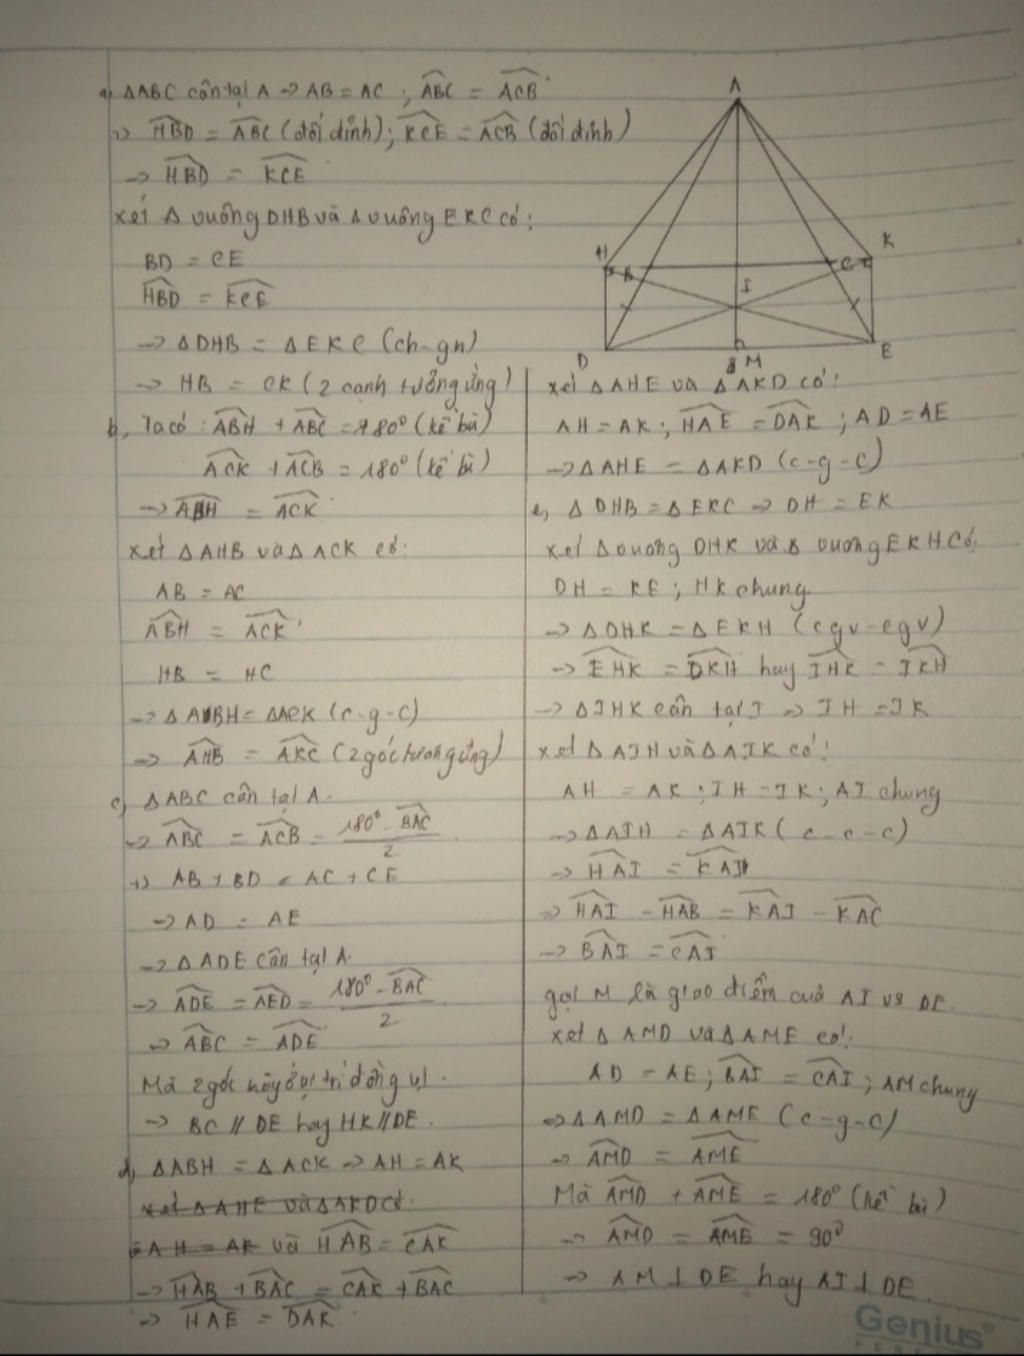 a, ΔABC cân tại A → AB = AC ; ∠ABC = ∠ACB
→ ∠HBD = ∠ABC (đối đỉnh); ∠KCE = ∠ACB (đối đỉnh)
→ ∠HBD = ∠KCE
xét Δ vuông DHB và Δ vuông EKC có:
BD = CE
∠HBD = ∠KCE
→ ΔDHB = ΔEKC (ch-gn)
→ HB = CK (2 cạnh tưởng ứng)
b, Ta có : ∠ABH + ∠ABC = 180° (kề bù)
∠ACK + ∠ACB = 180° (kề bù)
→ ∠ABH = ∠ACK
xét ΔAHB và ΔACK có:
AB = AC
∠ABH = ∠ACK
HB = HC
→ ΔABH = ΔACK (c-g-c)
→ ∠AHB = ∠AKC (2 góc tương ứng)
c, ΔABC cân tại A.
→ ∠ABC = ∠ACB = (180° - ∠BAC)/2
+) AB + BD = AC + CE
→ AD = AE
→ ΔADE cân tại A.
→ ∠ADE = ∠AED = (180° - ∠BAC)/2
→ ∠ABC = ∠ADE
Mà 2 góc này ở vị trí đồng vị.
→ BC // DE hay HK // DE.
d, ΔABH = ΔACK → AH = AK
xét ΔAHE và ΔAKD có:
AH = AK và ∠HAB = ∠CAK
→ ∠HAB + ∠BAC = ∠CAK + ∠BAC
→ ∠HAE = ∠DAK
A
H
B
C
K
I
D
M
E
xét ΔAHE và ΔAKD có:
AH = AK; ∠HAE = ∠DAK ; AD = AE
→ ΔAHE = ΔAKD (c-g-c)
e, ΔDHB = ΔEKC → DH = EK
xét Δ vuông DHK và Δ vuông EKH có:
DH = KE ; HK chung
→ ΔDHK = ΔEKH (cgv-cgv)
→ ∠EHK = ∠DKH hay ∠IHK = ∠IKH
→ ΔIHK cân tại I → IH = IK
xét ΔAIH và ΔAIK có:
AH = AK ; IH = IK ; AI chung
→ ΔAIH = ΔAIK (c-c-c)
→ ∠HAI = ∠KAI
→ ∠HAI - ∠HAB = ∠KAI - ∠KAC
→ ∠BAI = ∠CAI
gọi M là giao điểm của AI và DE.
xét ΔAMD và ΔAME có:
AD = AE ; ∠BAI = ∠CAI ; AM chung
→ ΔAMD = ΔAME (c-g-c)
→ ∠AMD = ∠AME
Mà ∠AMD + ∠AME = 180° (kề bù)
→ ∠AMD = ∠AME = 90°
→ AM ⊥ DE hay AI ⊥ DE.
Genius